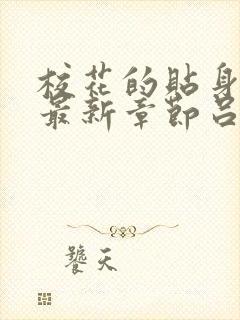 校花的貼身
最新章節呂
饕天